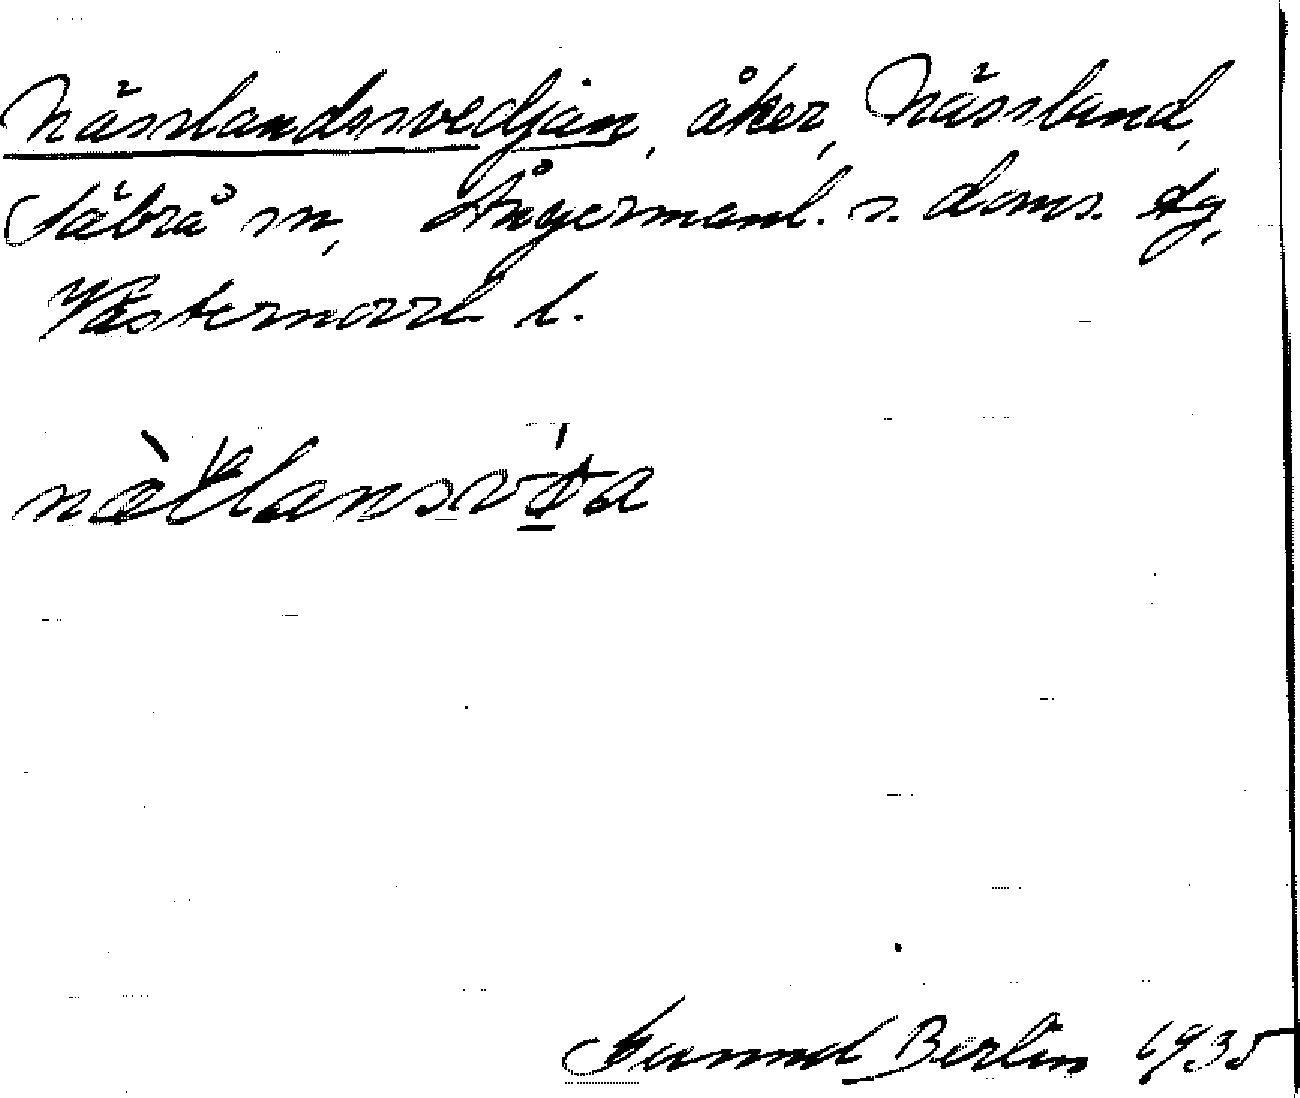 Nässlandssvedjan, åker, Nässland,
Säbrå sn, Ångermanl. s. doms. dg,
Västernorrl. l.
Gunnel Berlin 1935